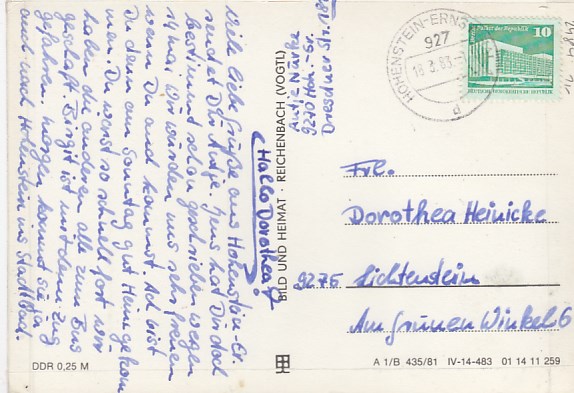 Hallo Dorothea!
Viele liebe Grüße aus Hohenstein-Er.
sendet Dir Antje. Jens hat Dir doch
bestimmt schon geschrieben wegen
wir würden uns sehr freuen
wenn Du auch kommst. Ach bist
Du denn am Sonntag gut Heim gekom
men. Du warst so schnell fort wir
haben die anderen alle zum Bus
geschafft. Birgit ist mit dem Zug
gefahren. Morgen kommt sie ja
auch nach Hohenstein ins Stadtbad.
Antje
9270 Hoh.-Er.
Dresdner Str.
BILD UND HEIMAT · REICHENBACH (VOGTL)
HOHENSTEIN-ERNS
927
18.3.83
d
Palast der Republik
10
DEUTSCHE DEMOKRATISCHE REPUBLIK
Frl.
Dorothea Heinicke
9275 Lichtenstein
Am Grünen Winkel 6
DDR 0,25 M
A 1/B 435/81 IV-14-483 01 14 11 259